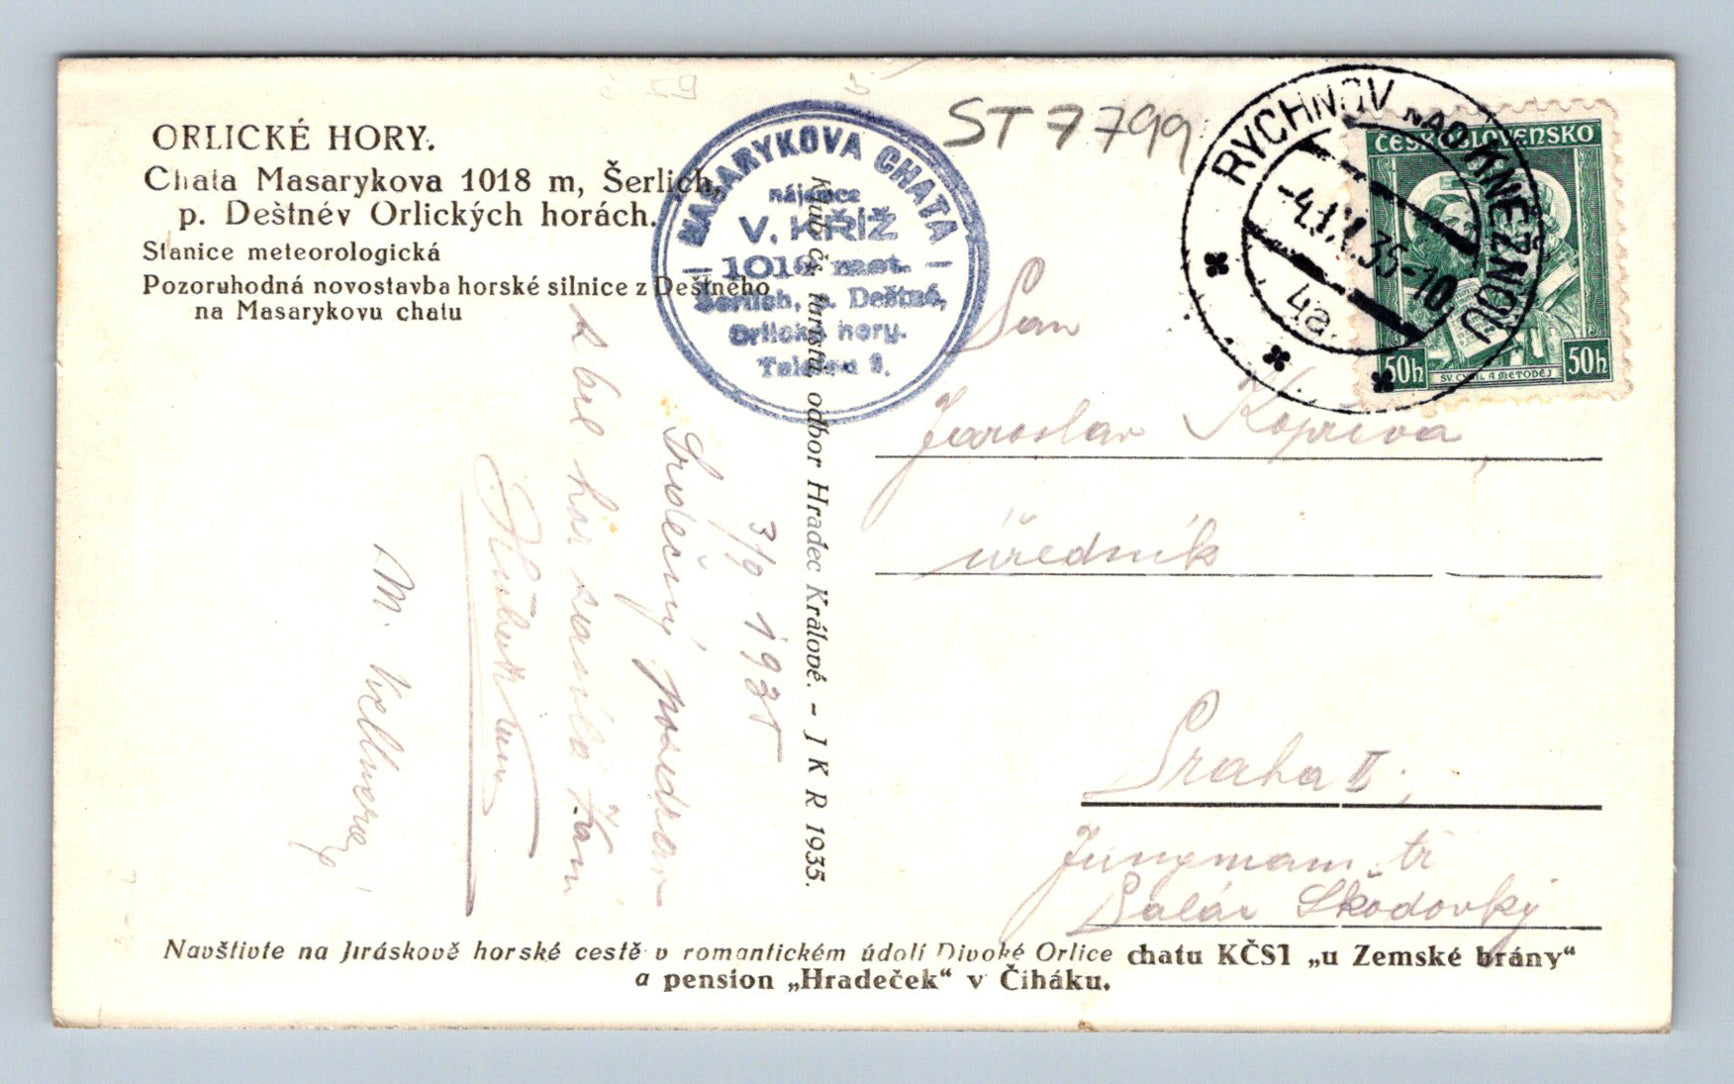 ORLICKÉ HORY.
Chata Masarykova 1018 m, Šerlich,
p. Deštnév Orlických horách.
Stanice meteorologická
Pozoruhodná novostavba horské silnice z Deštného
na Masarykovu chatu
MASARYKOVA CHATA
nájemce
V. KŘÍŽ
— 1018 met. —
Šerlich, p. Deštné,
Orlické hory.
ST 7799
RYCHNOV NAD KNĚŽNOU
-4.IX.35-10
4a.
ČESKOSLOVENSKO
50h
SV. CYRIL A METODĚJ
50h
Klub čs. turistů, odbor Hradec Králové. - J K R 1935.
3/9 1935
Srdečný pozdrav
z hor Vám
M. Kellnerov
Pan
Jaroslav Kopřiva,
úředník
Praha II.,
Jungmann. tř
Palác Škodovky
Navštivte na Jiráskově horské cestě v romantickém údolí Divoké Orlice chatu KČST „u Zemské brány“
a pension „Hradeček“ v Čiháku.